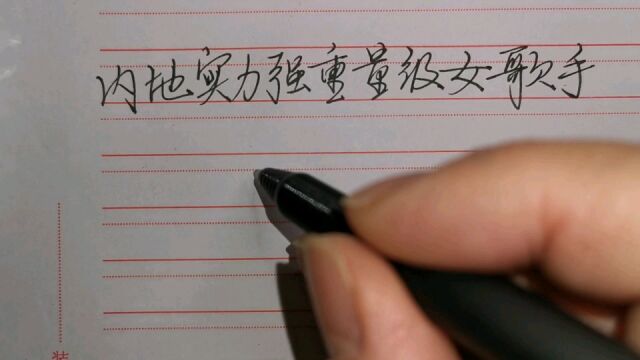 内地实力强重量级女歌手
装